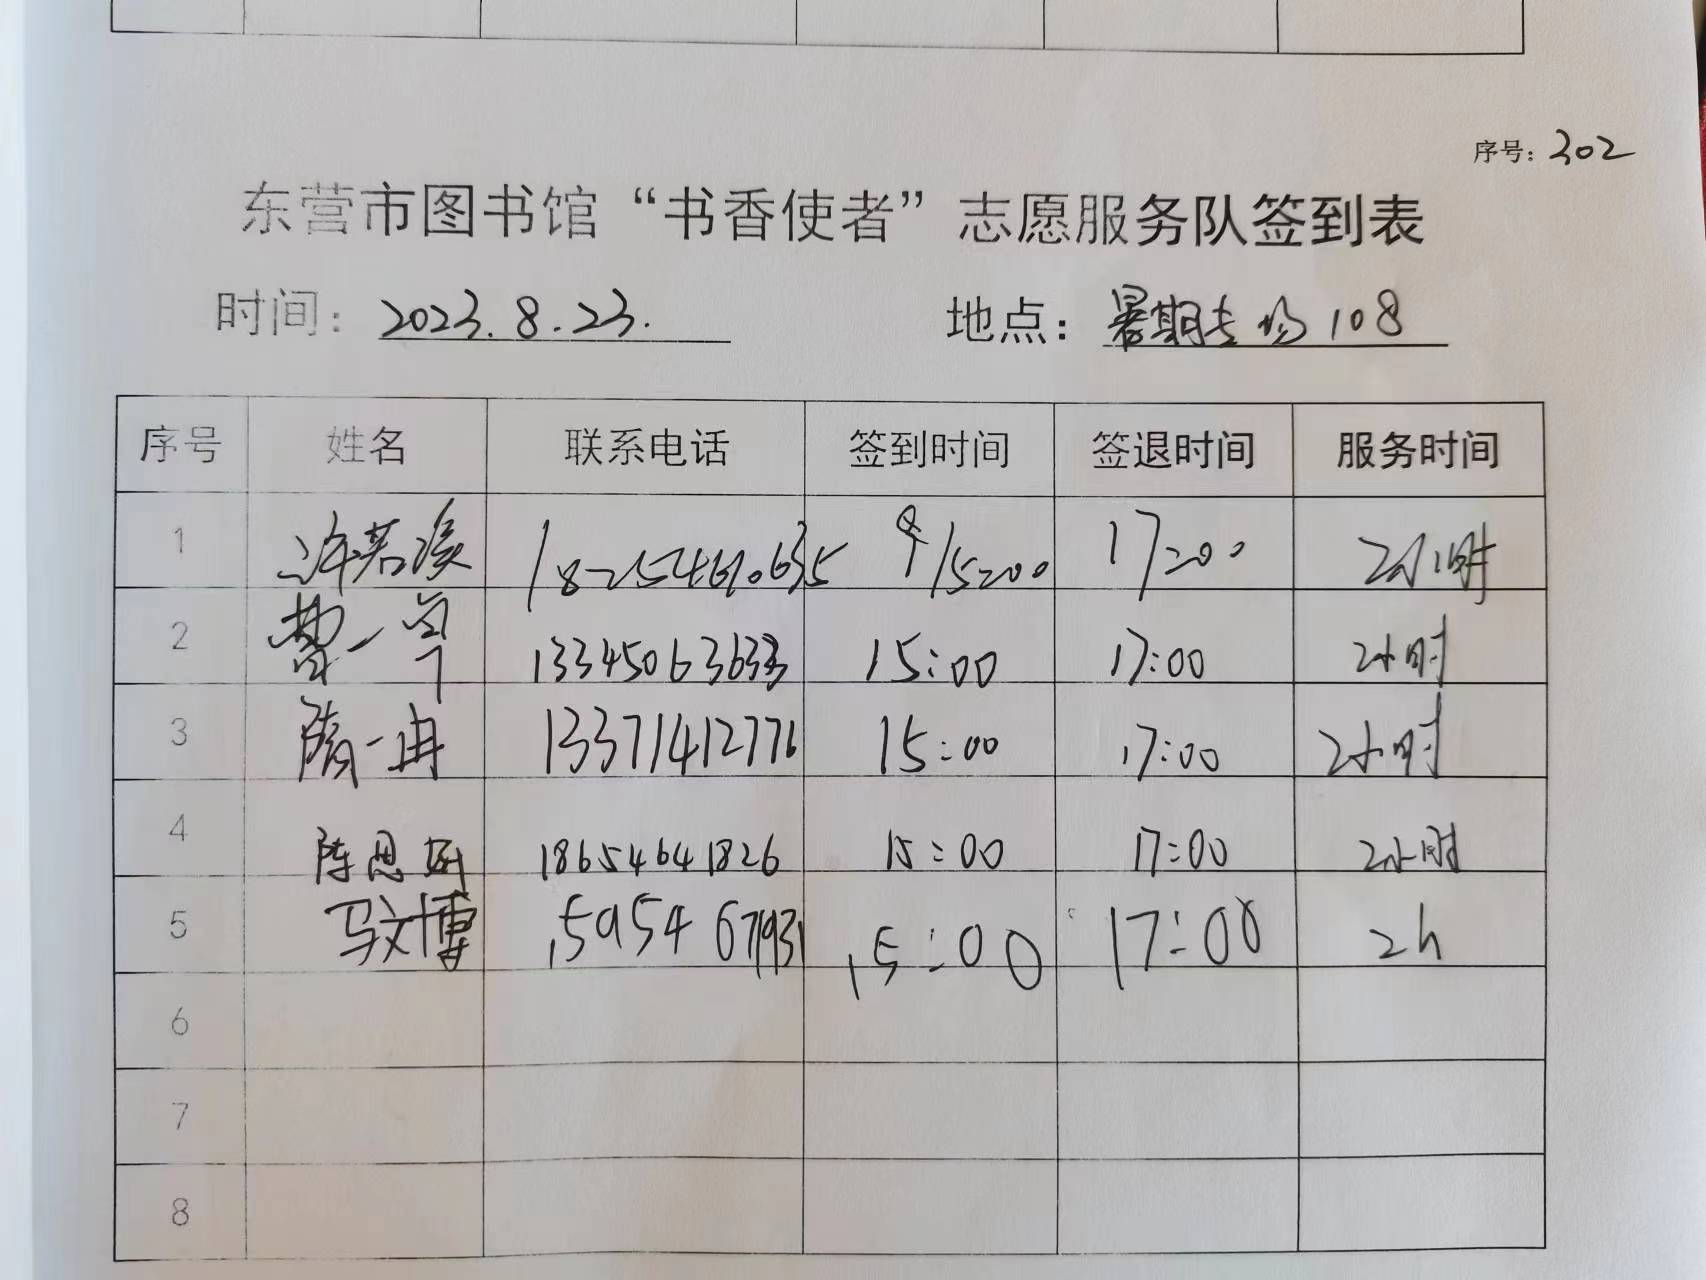 序号：302
东营市图书馆“书香使者”志愿服务队签到表
时间：2023.8.23. 地点：暑期专场108
序号 姓名 联系电话 签到时间 签退时间 服务时间
1 许若溪 15:00 17:00 2小时
2 曹一卓 13345063633 15:00 17:00 2小时
3 隋一冉 13371412776 15:00 17:00 2小时
4 陈思 18654641826 15:00 17:00 2小时
5 马文博 15954679931 15:00 17:00 2h
6
7
8